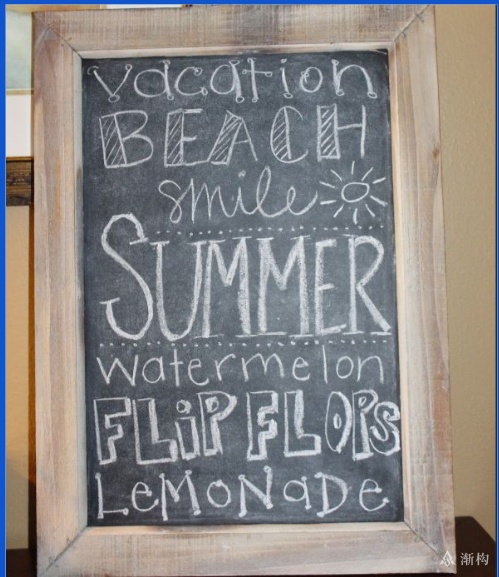 vacation
BEACH
smile
SUMMER
watermelon
FLiP FLOPS
LeMONaDe
渐构